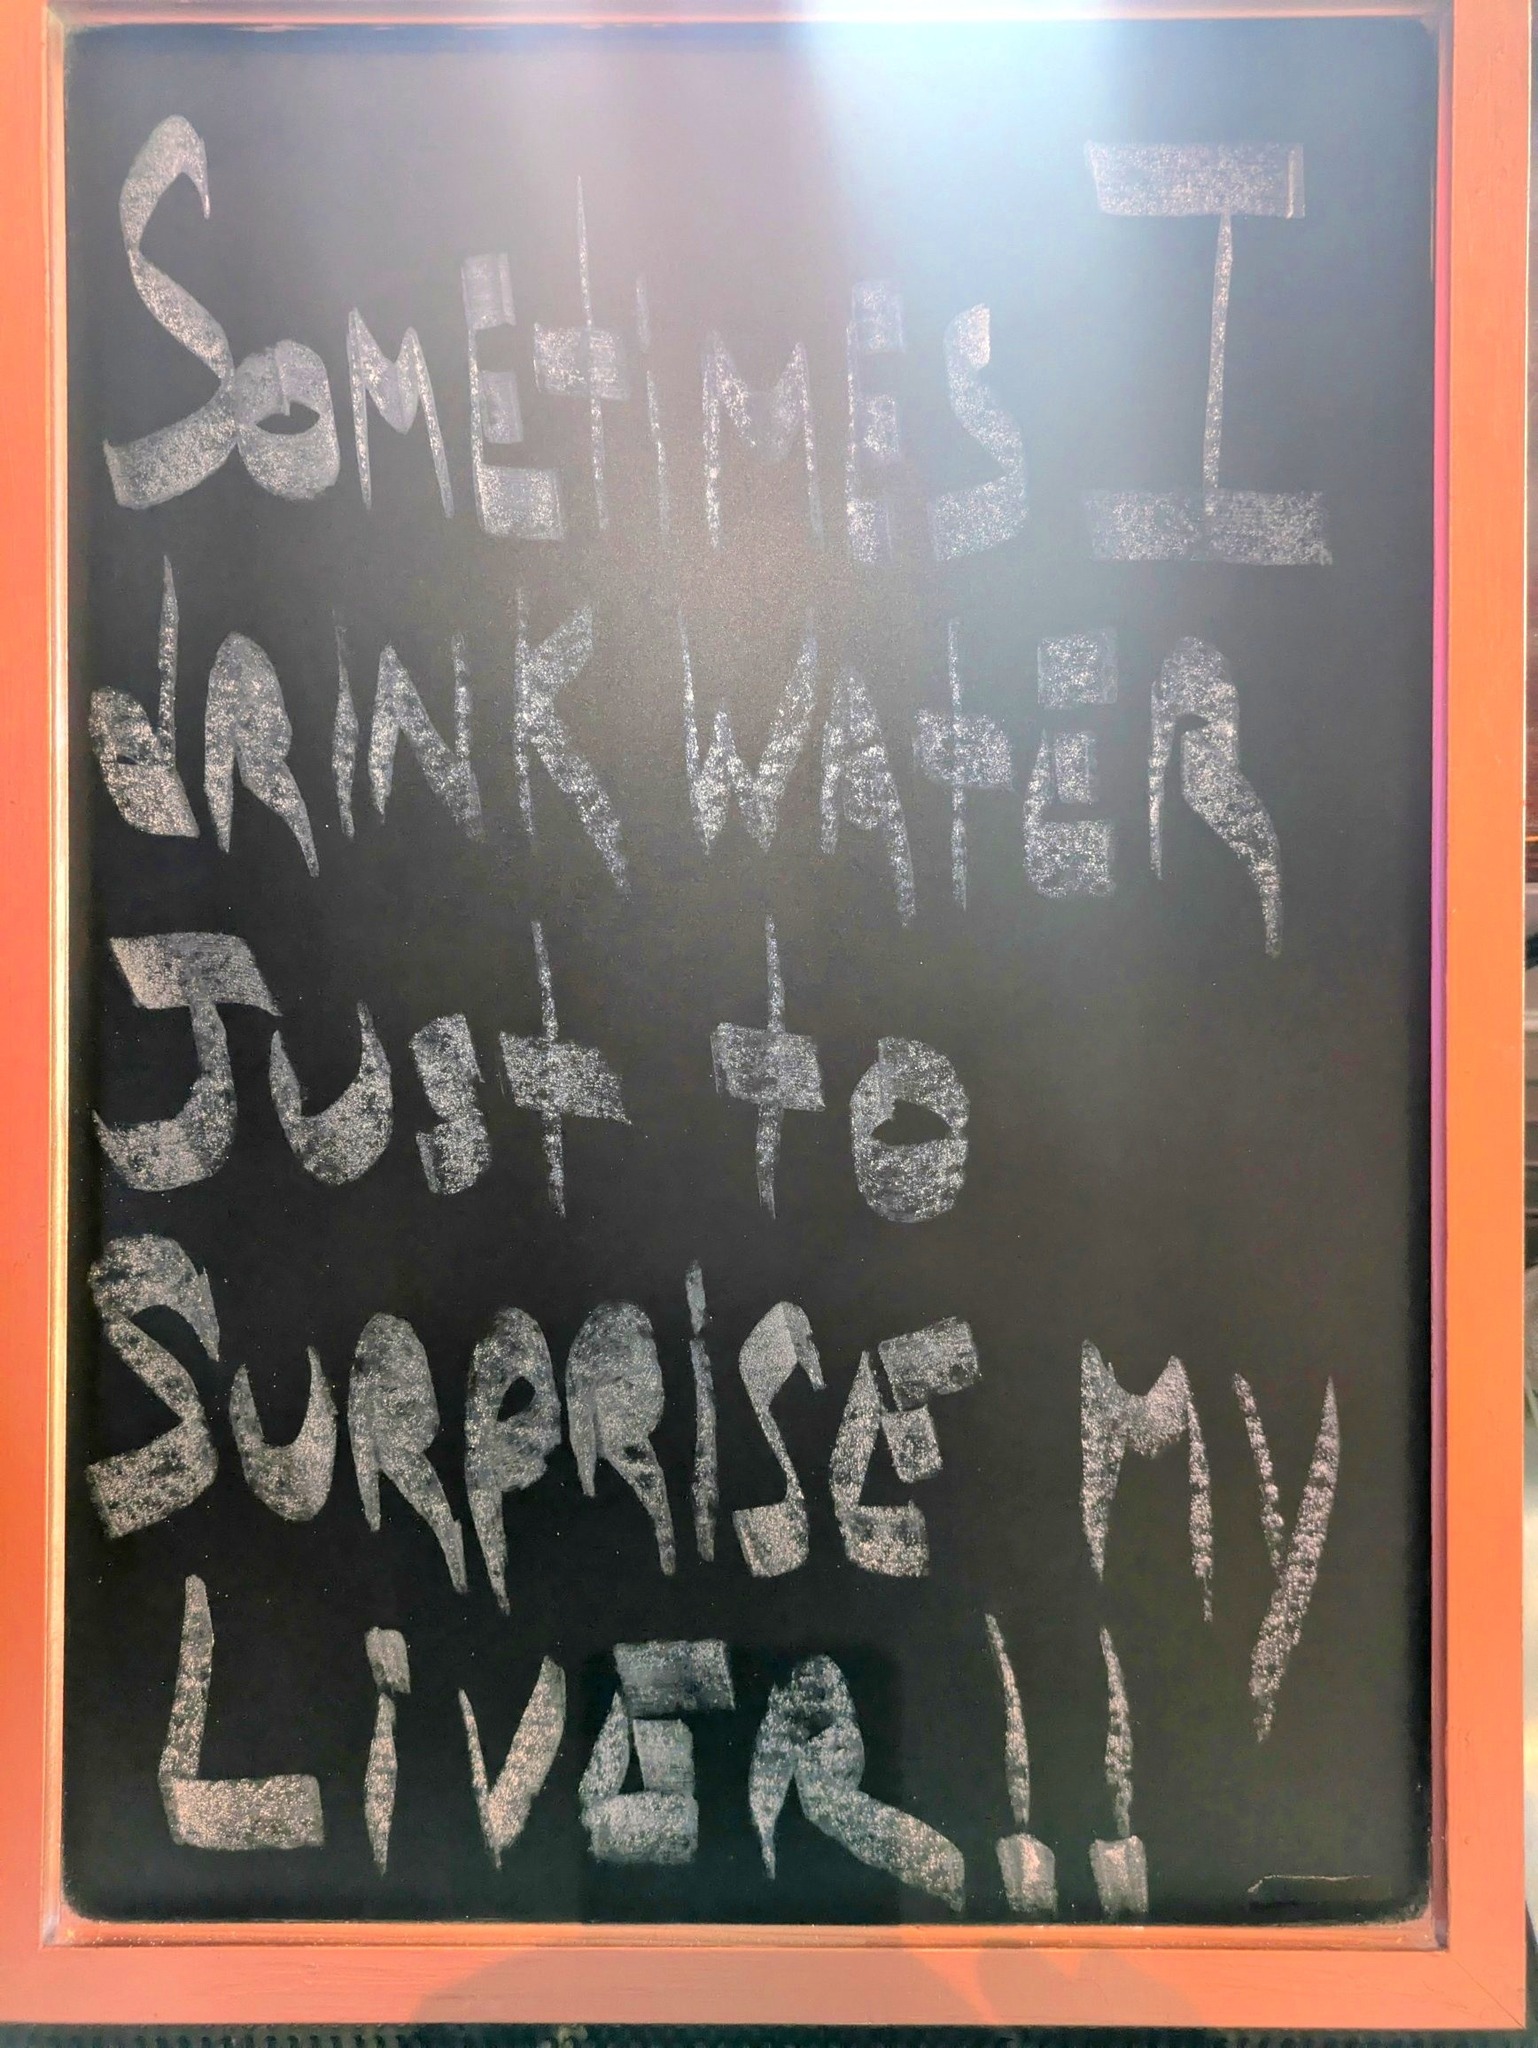 SOMETIMES I
dRINK WATER
JUST TO
SURPRiSE MY
LiVER!!